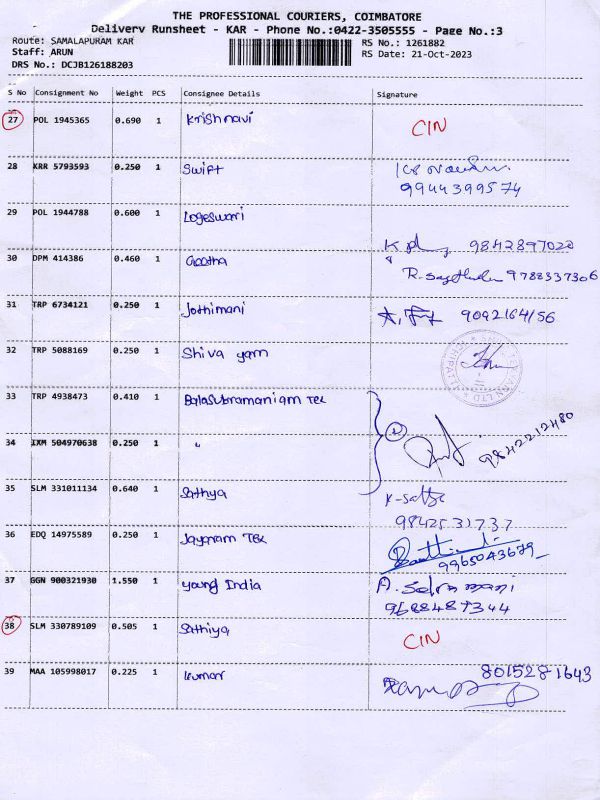 THE PROFESSIONAL COURIERS, COIMBATORE
Delivery Runsheet - KAR - Phone No.:0422-3505555 - Page No.:3
Route: SAMALAPURAM KAR
RS No.: 1261882
Staff: ARUN
RS Date: 21-Oct-2023
DRS No.: DCJB126188203
S No Consignment No Weight PCS Consignee Details Signature
27 POL 1945365 0.690 1 Krishnavi CIN
28 KRR 5793593 0.250 1 Swift
9944399574
29 POL 1944788 0.600 1 Logeswari
K 9842897020
30 DPM 414386 0.460 1 Geetha
& R. 9788337306
31 TRP 6734121 0.250 1 Jothimani 9092164156
32 TRP 5088169 0.250 1 Shiva yarn
33 TRP 4938473 0.410 1 Balasubramaniam Tex
34 IXM 504970638 0.250 1 " 2 9842212480
35 SLM 331011134 0.640 1 Sathya K-
9842531737
36 EDQ 14975589 0.250 1 Jayaram Tex
9965043679
37 GGN 900321930 1.550 1 Young India A. Selvamani
9688487344
38 SLM 330789109 0.505 1 Sathiya CIN
39 MAA 105998017 0.225 1 Kumar 8015281643